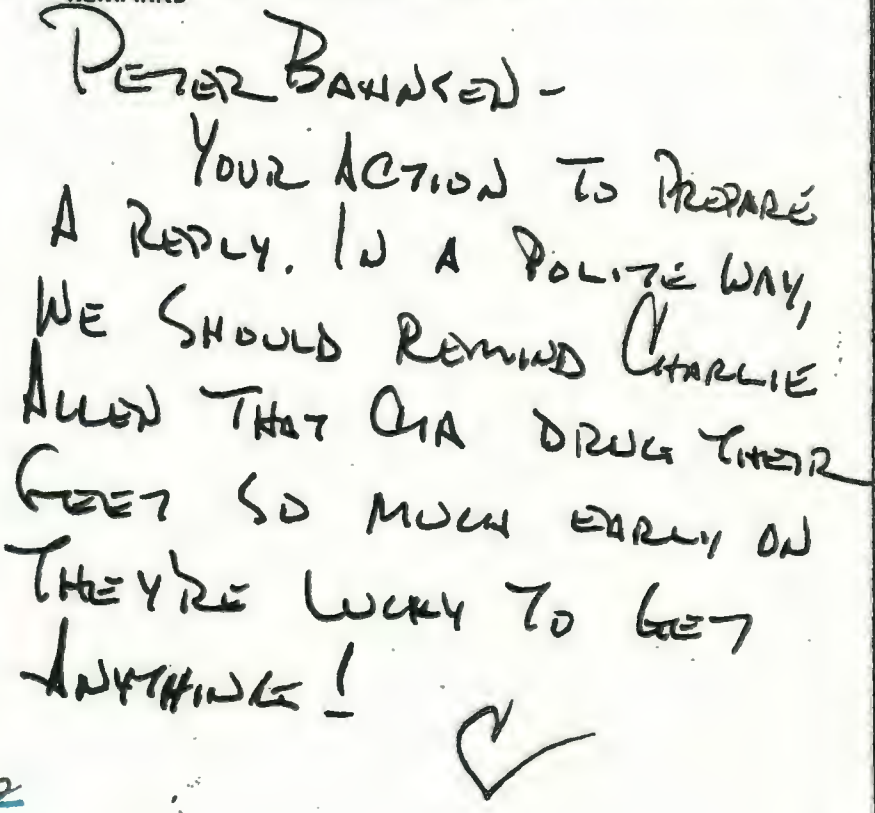 Peter Bahnsen -
Your Action To Prepare
A Reply. In A Polite Way,
We Should Remind Charlie
Allen That CIA Drug Their
Feet So Much Early On
They're Lucky To Get
Anything!